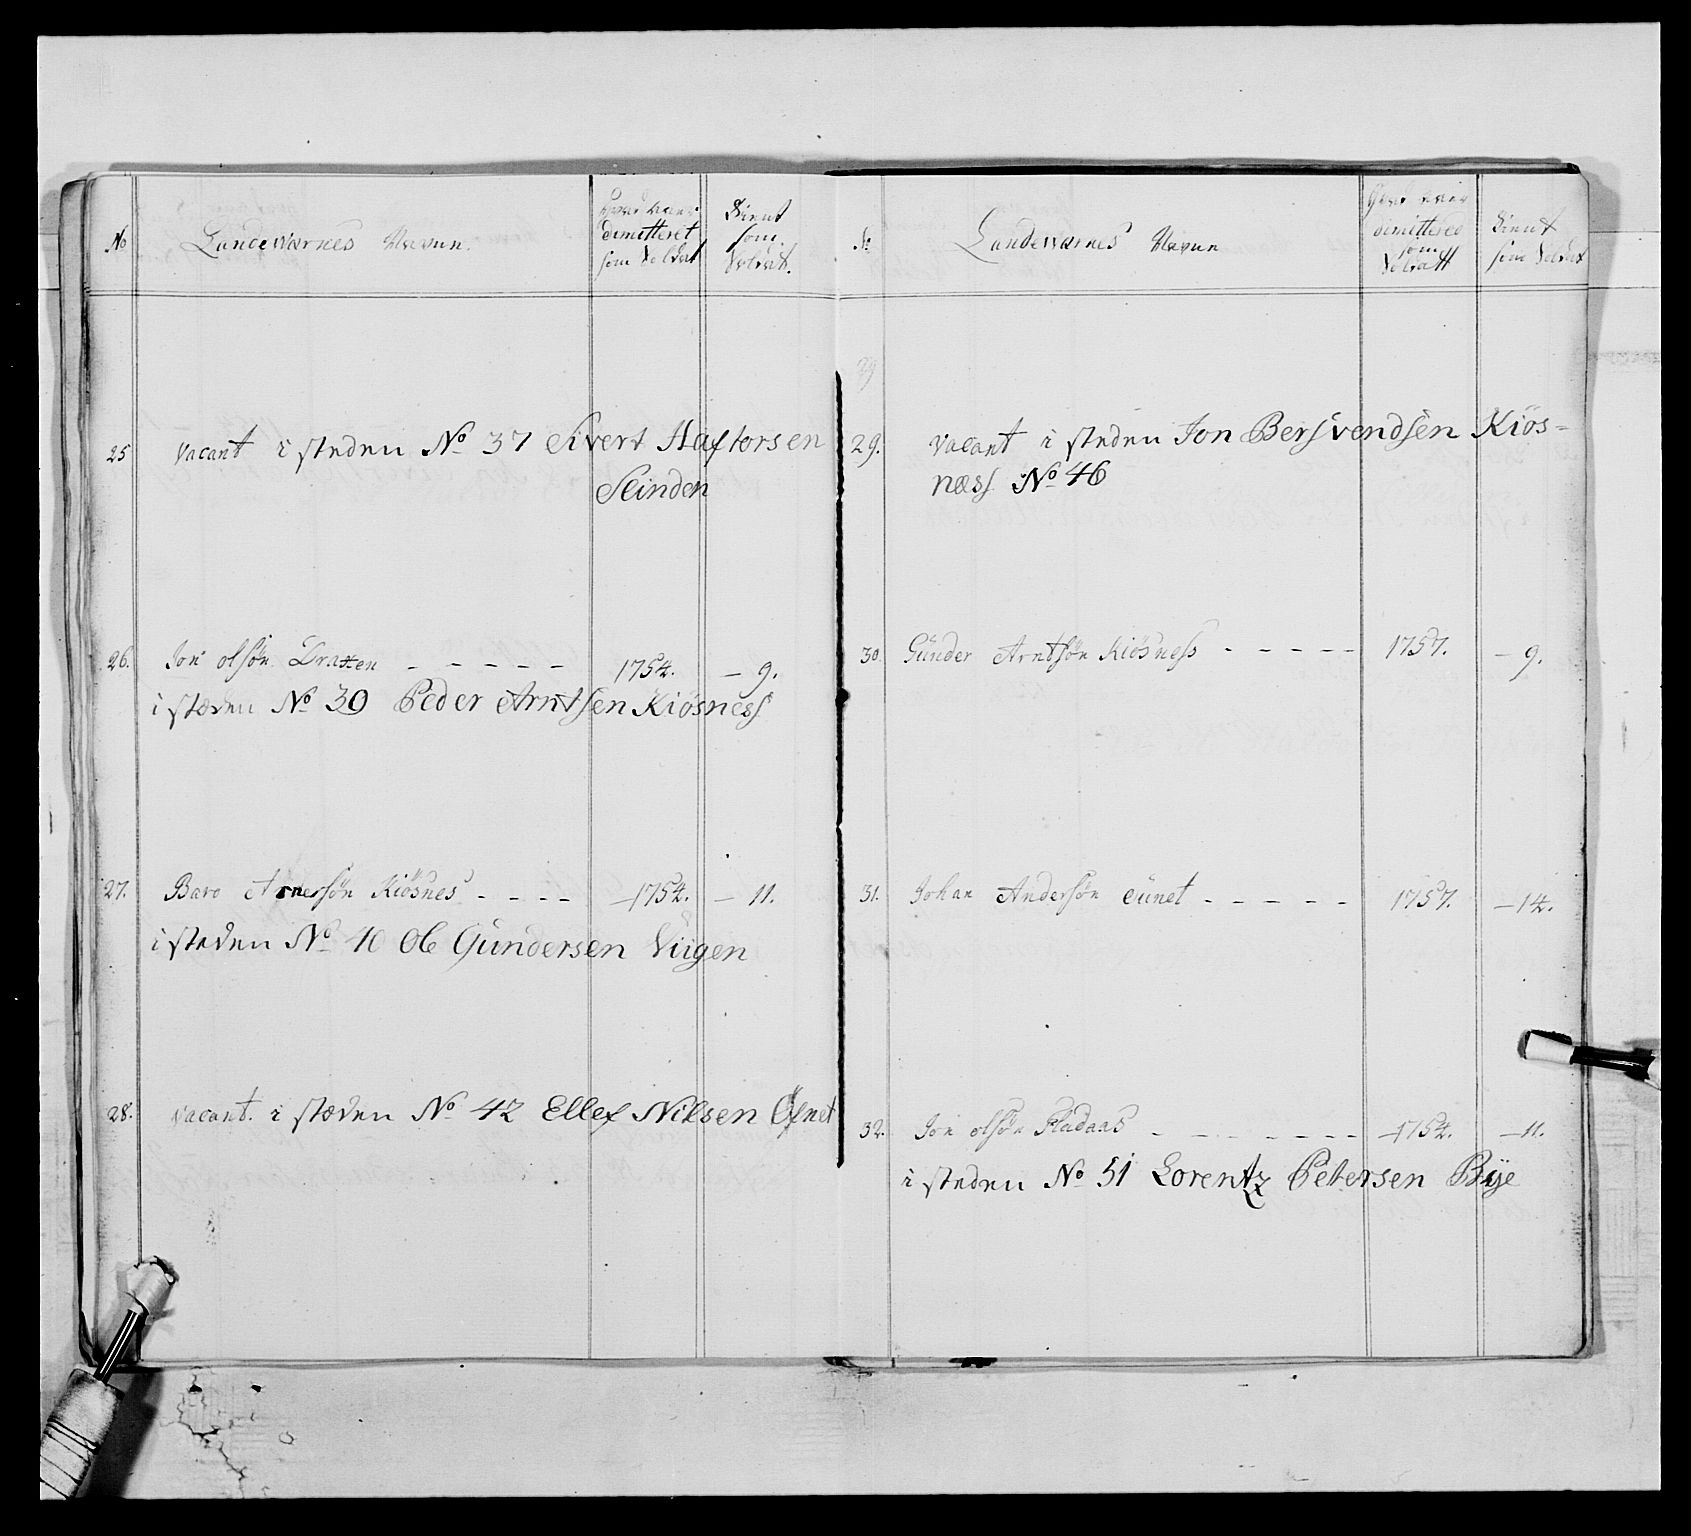 No
Landeværnes Navn.
Hvad aar
dimitteret
som Soldat
Dient
som
Soldat.
25 vacant i steden No 37 Sivert Haftorsen
Slinden
26. Jon olsøn Draxen - - - - - 1754. - 9.
i stæden No 39 Peder Arntsen Kiösness
27. Baro Arnersøn Kiösnes - - - - 1754. - 11.
i steden No 40 Ole Gundersen Viigen
28. vacant. i stæden No 42 Ellef Nilsen Öfnet
No
Landeværnes Navn
Hvad aar
dimittered
som
Soldatt
Dient
som Soldat
29
29. vacant i steden Jon Bersvendsen Kiös-
næss No 46
30. Günder Arntsøn Kiösness - - - - - 1757. - 9.
31. Johan Andersøn eünet - - - - - 1757. - 14.
32. Jon olsøn Fladaas - - - - - - - 1754. - 11.
i steden No 51 Lorentz Petersen Bye